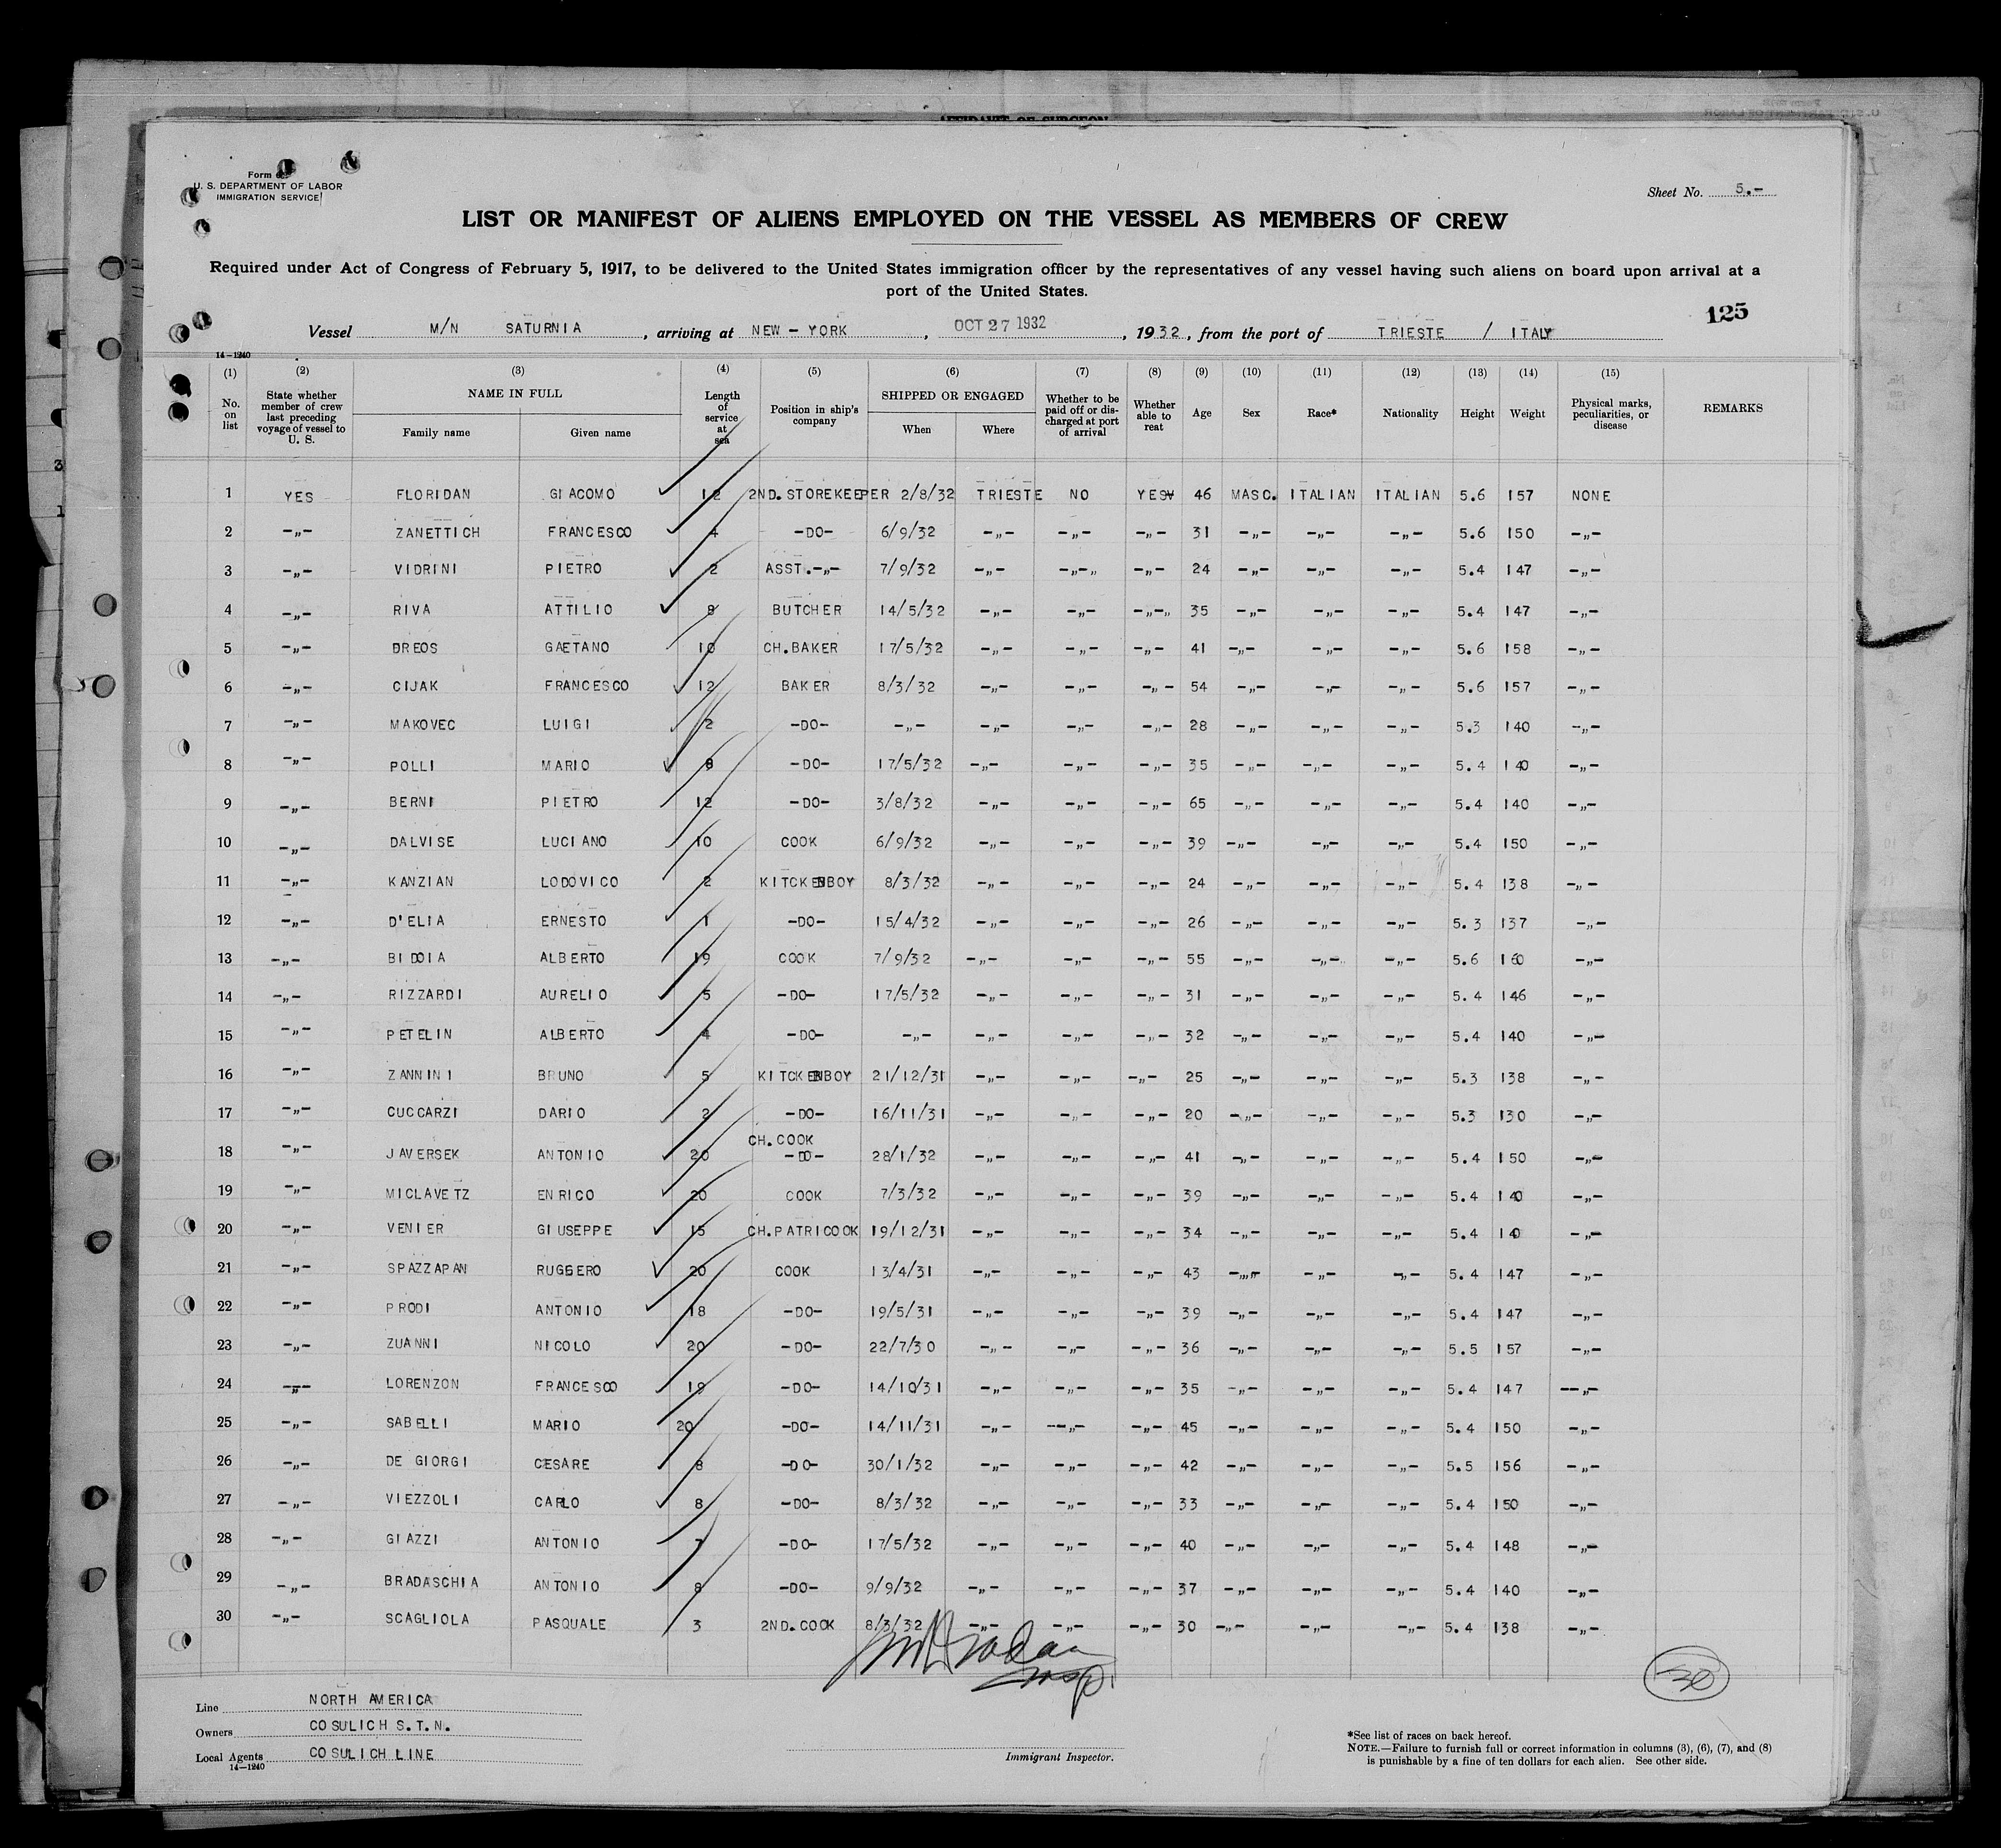 AFFIDAVIT OF SURGEON
Form
U. S. DEPARTMENT OF LABOR
IMMIGRATION SERVICE
Sheet No. 5.-
LIST OR MANIFEST OF ALIENS EMPLOYED ON THE VESSEL AS MEMBERS OF CREW
Required under Act of Congress of February 5, 1917, to be delivered to the United States immigration officer by the representatives of any vessel having such aliens on board upon arrival at a
port of the United States.
125
Vessel M/N SATURNIA, arriving at NEW-YORK, OCT 27 1932, 1932, from the port of TRIESTE / ITALY
14-1240
(1) (2) (3) (4) (5) (6) (7) (8) (9) (10) (11) (12) (13) (14) (15)
No. on list | State whether member of crew last preceding voyage of vessel to U. S. | NAME IN FULL | Family name | Given name | Length of service at sea | Position in ship's company | SHIPPED OR ENGAGED | When | Where | Whether to be paid off or discharged at port of arrival | Whether able to reat | Age | Sex | Race* | Nationality | Height | Weight | Physical marks, peculiarities, or disease | REMARKS
1 YES FLORIDAN GIACOMO 12 2ND. STOREKEEPER 2/8/32 TRIESTE NO YES 46 MASC. ITALIAN ITALIAN 5.6 157 NONE
2 -„- ZANETTICH FRANCESCO 4 -DO- 6/9/32 -„- -„- -„- 31 -„- -„- -„- 5.6 150 -„-
3 -„- VIDRINI PIETRO 2 ASST.-„- 7/9/32 -„- -„-„ -„- 24 -„- -„- -„- 5.4 147 -„-
4 -„- RIVA ATTILIO 8 BUTCHER 14/5/32 -„- -„- -„-„ 35 -„- -„- -„- 5.4 147 -„-
5 -„- DREOS GAETANO 10 CH.BAKER 17/5/32 -„- -„- -„- 41 -„- -„- -„- 5.6 158 -„-
6 -„- CIJAK FRANCESCO 12 BAKER 8/3/32 -„- -„- -„- 54 -„- -„- -„- 5.6 157 -„-
7 -„- MAKOVEC LUIGI 2 -DO- -„- -„- -„- -„- 28 -„- -„- -„- 5.3 140 -„-
8 -„- POLLI MARIO 8 -DO- 17/5/32 -„- -„- -„- 35 -„- -„- -„- 5.4 140 -„-
9 -„- BERNI PIETRO 12 -DO- 3/8/32 -„- -„- -„- 65 -„- -„- -„- 5.4 140 -„-
10 -„- DALVISE LUCIANO 10 COOK 6/9/32 -„- -„- -„- 39 -„- -„- -„- 5.4 150 -„-
11 -„- KANZIAN LODOVICO 2 KITCKENBOY 8/3/32 -„- -„- -„- 24 -„- -„- -„- 5.4 138 -„-
12 -„- D'ELIA ERNESTO 1 -DO- 15/4/32 -„- -„- -„- 26 -„- -„- -„- 5.3 137 -„-
13 -„- BIDOIA ALBERTO 19 COOK 7/9/32 -„- -„- -„- 55 -„- -„- -„- 5.6 160 -„-
14 -„- RIZZARDI AURELIO 5 -DO- 17/5/32 -„- -„- -„- 31 -„- -„- -„- 5.4 146 -„-
15 -„- PETELIN ALBERTO 4 -DO- -„- -„- -„- -„- 32 -„- -„- -„- 5.4 140 -„-
16 -„- ZANNINI BRUNO 5 KITCKENBOY 21/12/31 -„- -„- -„- 25 -„- -„- -„- 5.3 138 -„-
17 -„- CUCCARZI DARIO 2 -DO- 16/11/31 -„- -„- -„- 20 -„- -„- -„- 5.3 130 -„-
18 -„- JAVERSEK ANTONIO 20 CH.COOK -DO- 28/1/32 -„- -„- -„- 41 -„- -„- -„- 5.4 150 -„-
19 -„- MICLAVETZ ENRICO 20 COOK 7/3/32 -„- -„- -„- 39 -„- -„- -„- 5.4 140 -„-
20 -„- VENIER GIUSEPPE 15 CH.PATRICOOK 19/12/31 -„- -„- -„- 34 -„- -„- -„- 5.4 140 -„-
21 -„- SPAZZAPAN RUGGERO 20 COOK 13/4/31 -„- -„- -„- 43 -„- -„- -„- 5.4 147 -„-
22 -„- PRODI ANTONIO 18 -DO- 19/5/31 -„- -„- -„- 39 -„- -„- -„- 5.4 147 -„-
23 -„- ZUANNI NICOLO 20 -DO- 22/7/30 -„- -„- -„- 36 -„- -„- -„- 5.5 157 -„-
24 -„- LORENZON FRANCESCO 19 -DO- 14/10/31 -„- -„- -„- 35 -„- -„- -„- 5.4 147 --„-
25 -„- SABELLI MARIO 20 -DO- 14/11/31 -„- --„- -„- 45 -„- -„- -„- 5.4 150 -„-
26 -„- DE GIORGI CESARE 8 -DO- 30/1/32 -„- -„- -„- 42 -„- -„- -„- 5.5 156 -„-
27 -„- VIEZZOLI CARLO 8 -DO- 8/3/32 -„- -„- -„- 33 -„- -„- -„- 5.4 150 -„-
28 -„- GIAZZI ANTONIO 7 -DO- 17/5/32 -„- -„- -„- 40 -„- -„- -„- 5.4 148 -„-
29 -„- BRADASCHIA ANTONIO 8 -DO- 9/9/32 -„- -„- -„- 37 -„- -„- -„- 5.4 140 -„-
30 -„- SCAGLIOLA PASQUALE 3 2ND.COOK 8/3/32 -„- -„- -„- 30 -„- -„- -„- 5.4 138 -„-
Insp.
30
Line NORTH AMERICA
Owners COSULICH S.T.N.
Local Agents COSULICH LINE
14-1240
Immigrant Inspector.
*See list of races on back hereof.
NOTE.—Failure to furnish full or correct information in columns (3), (6), (7), and (8)
is punishable by a fine of ten dollars for each alien. See other side.